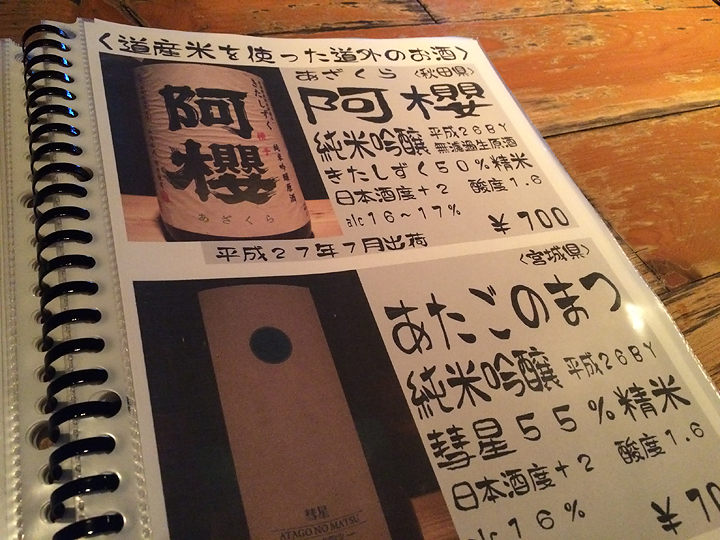 〈道産米を使った道外のお酒〉
あざくら 〈秋田県〉
阿櫻
純米吟醸 平成26BY
無濾過生原酒
きたしずく50%精米
日本酒度+2 酸度1.6
alc16~17%
¥700
平成27年7月出荷
きたしずく
阿櫻
純米吟醸原酒
あざくら
〈宮城県〉
あたごのまつ
純米吟醸 平成26BY
彗星55%精米
日本酒度+2 酸度1.6
alc16%
彗星
ATAGO NO MATSU